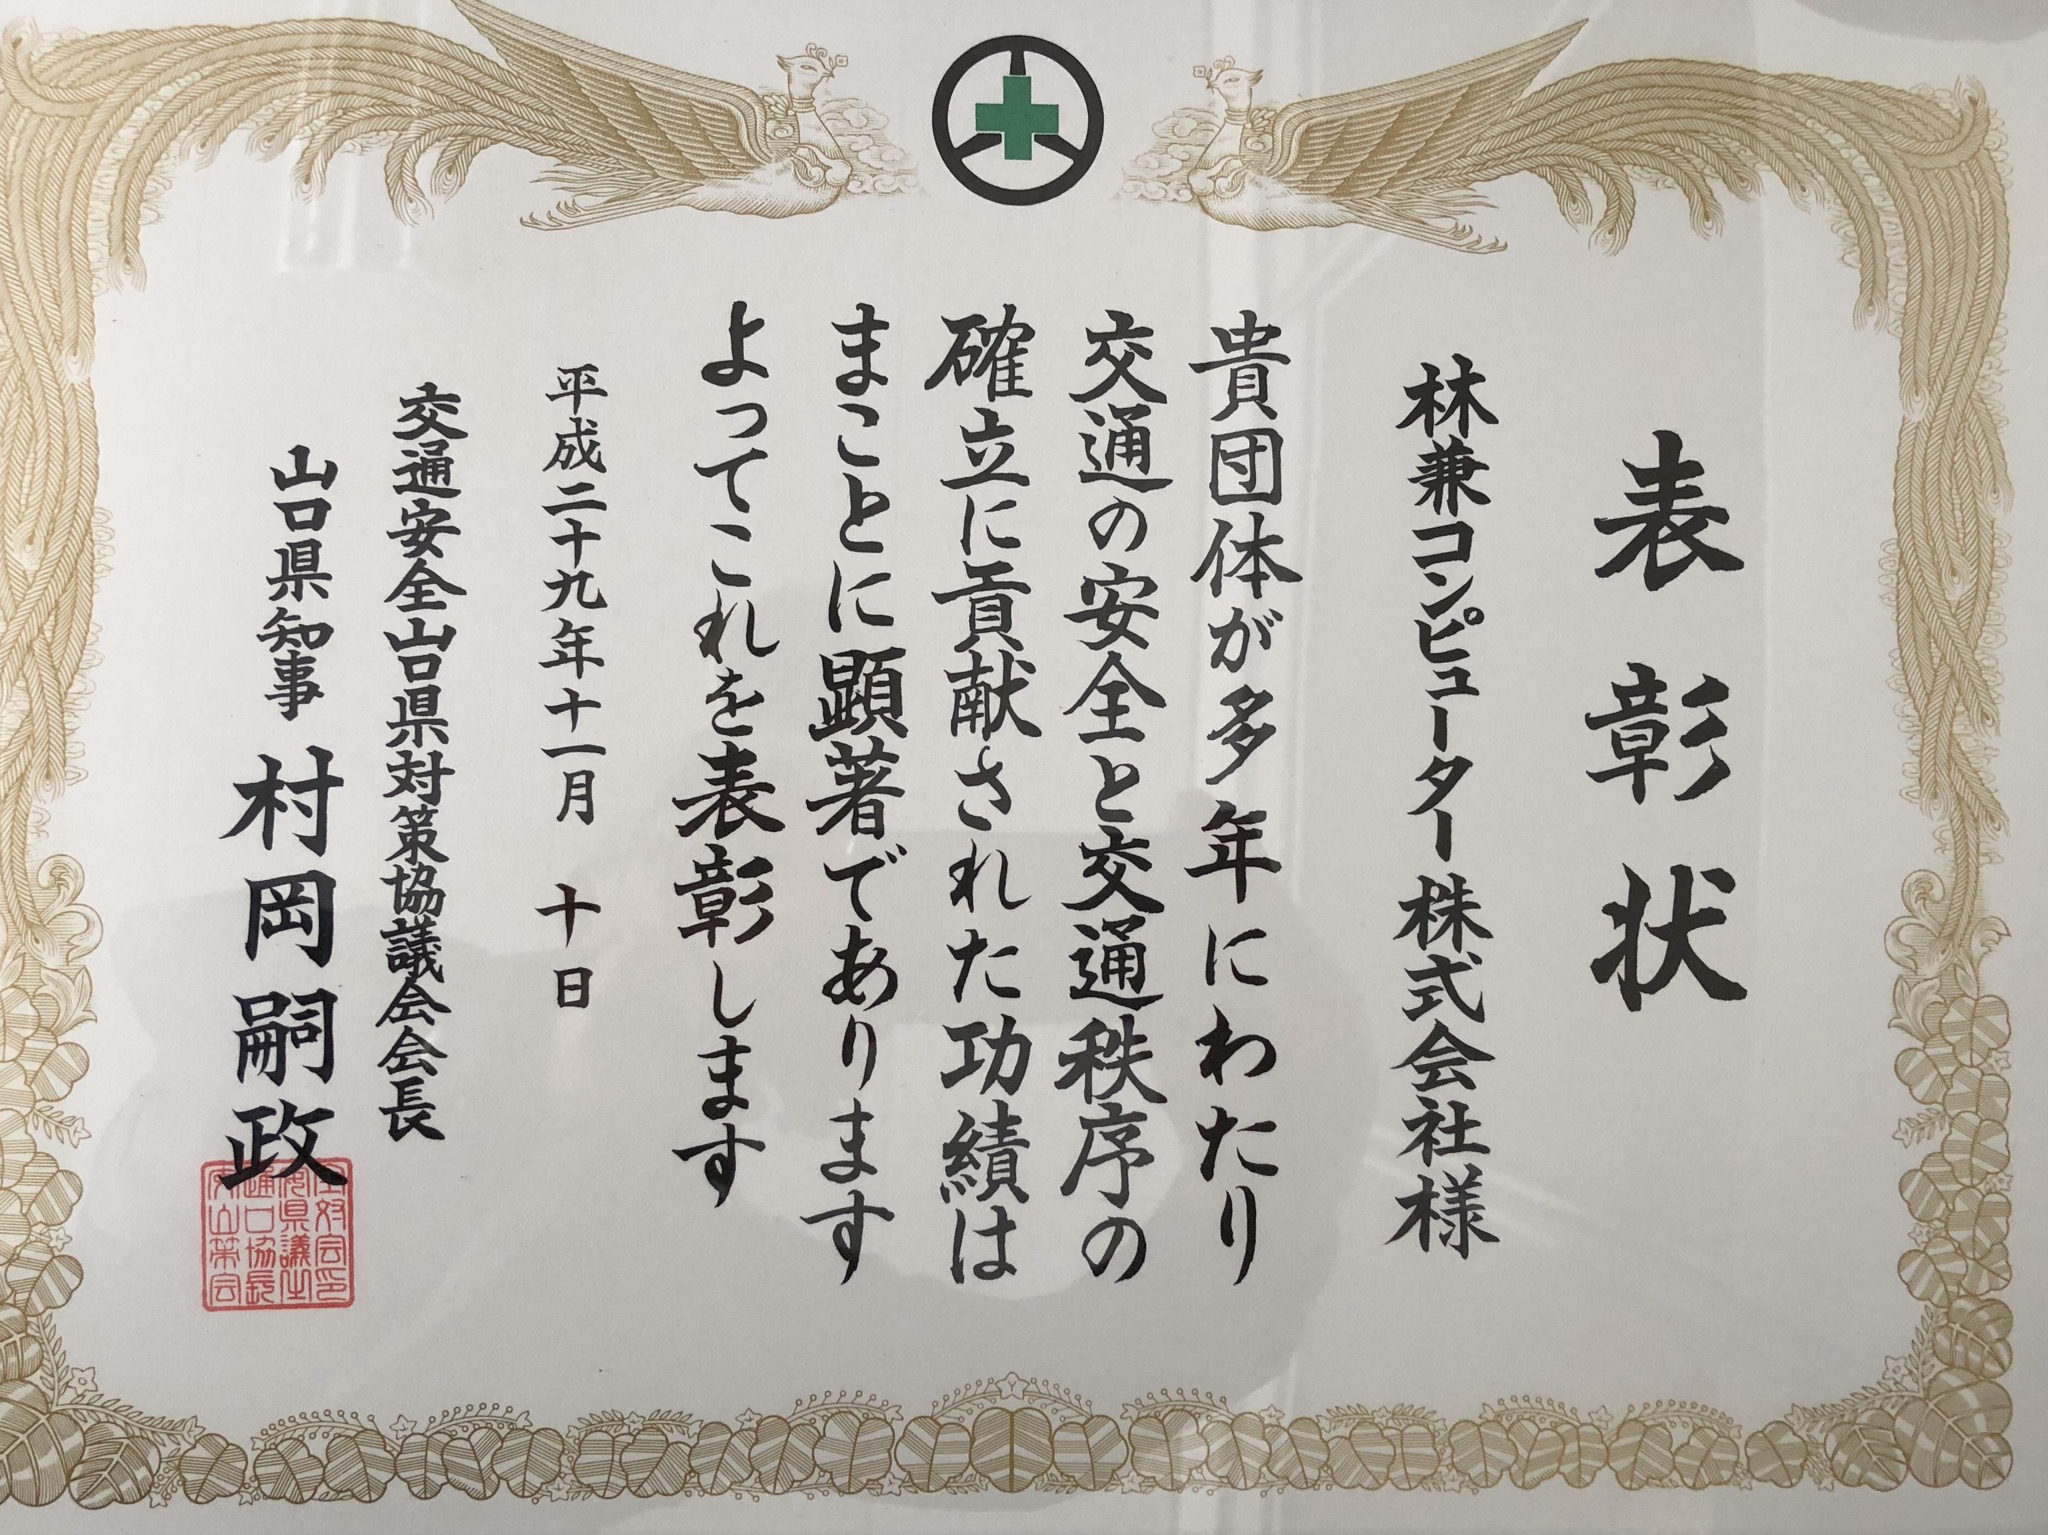 表彰状
林兼コンピューター株式会社様
貴団体が多年にわたり
交通の安全と交通秩序の
確立に貢献された功績は
まことに顕著であります
よってこれを表彰します
平成二十九年十一月 十日
交通安全山口県対策協議会会長
山口県知事 村岡嗣政